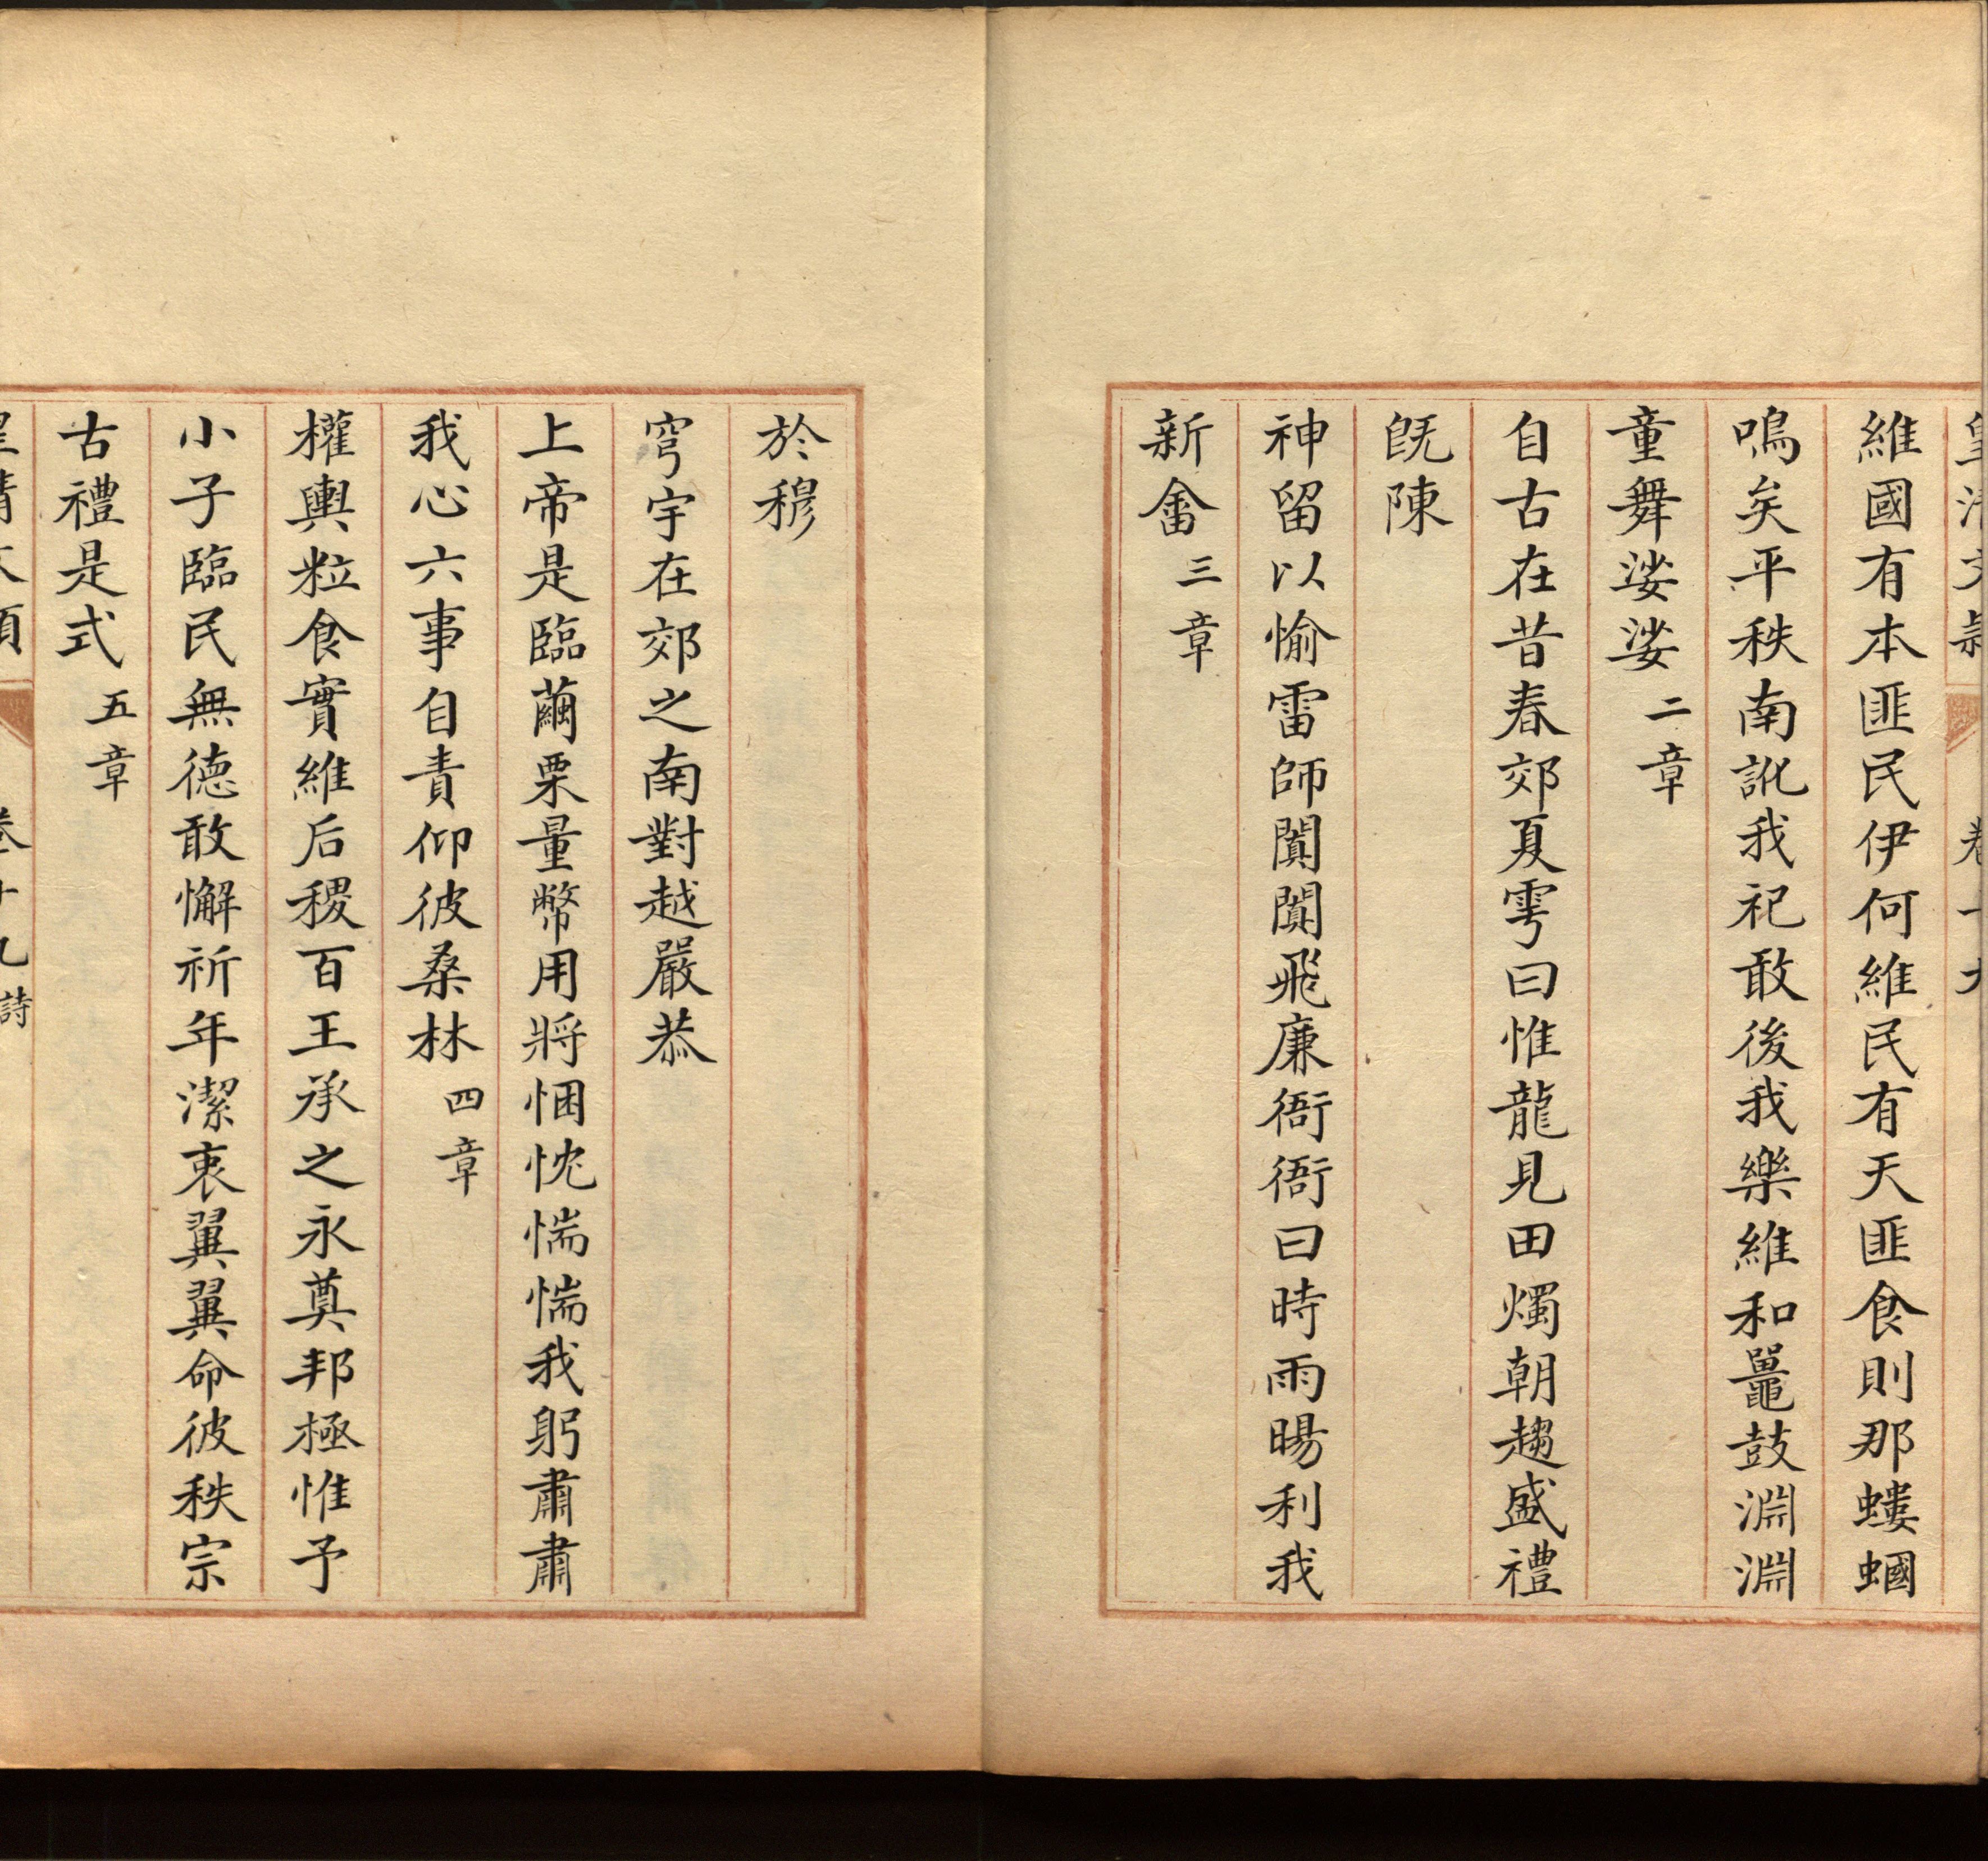 維國有本匪民伊何維民有天匪食則那螻蟈
鳴矣平秩南訛我祀敢後我樂維和鼉鼓淵淵
童舞娑娑二章
自古在昔春郊夏雩曰惟龍見田燭朝趨盛禮
旣陳
神留以愉雷師闐闐飛廉衙衙曰時雨暘利我
新畬三章
於穆
穹宇在郊之南對越嚴恭
上帝是臨繭栗量幣用將悃忱惴惴我躬肅肅
我心六事自責仰彼桑林四章
權輿粒食實維后稷百王承之永奠邦極惟予
小子臨民無德敢懈祈年潔衷翼翼命彼秩宗
古禮是式五章
卷十九詩